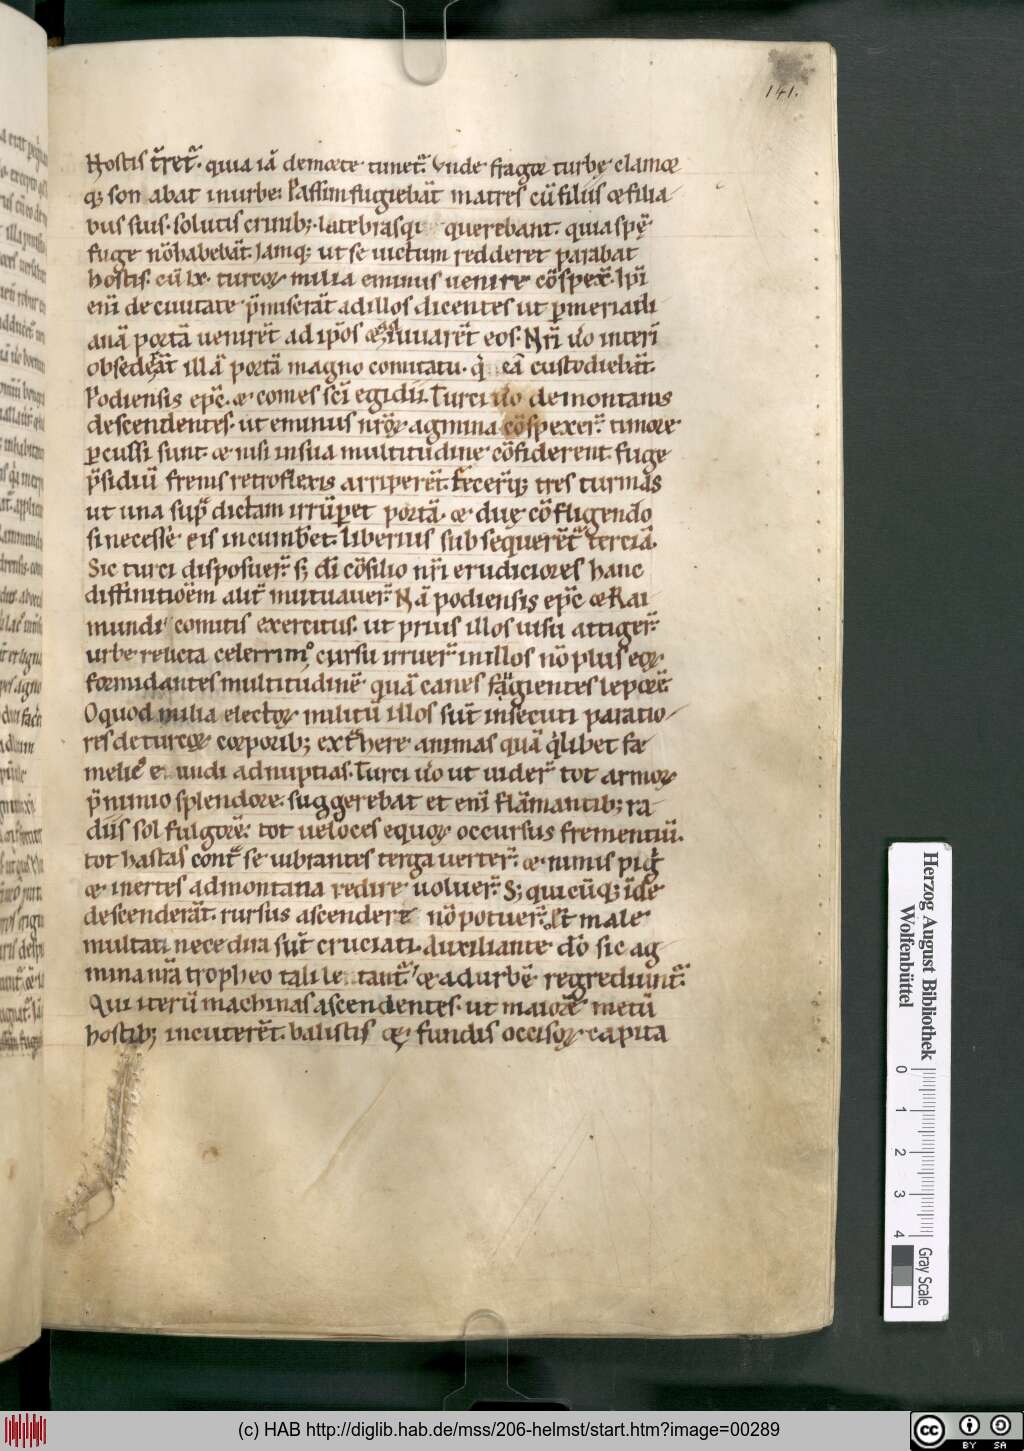 141.
Hostis t̄ret᷑. quia iā de morte timet᷑. Vnde fragor turbę clamor
q; son abat in urbe. Passim fugiebāt matres cū filiis & filia
bus suis. solutis crinib;. latebras querebant. quia spē
fugę nō habebāt. Iamq; ut se uictum redderet parabat
hostis. cū lx. turcoꝝ milia eminus uenire cōspex̄. Ipī
enī de ciuitate p̄miserāt ad illos dicentes ut ꝑ meridi
anā portā uenirēt ad ipōs & iuuarēt eos. Nr̄i ūo interī
obsederāt illā portā magno comitatu. eā custodiebāt.
Podiensis ep̄c. & comes sc̄i egidii. Turci ūo de montanis
descendentes. ut eminus nr̄oꝝ agmina cōspexer̄. timore
ꝑculsi sunt. & nisi in sua multitudine cōfiderent. fugę
p̄sidiū frenis retroflexis arriperēt. Fecer̄q; tres turmas
ut una sup̄ dictam irrūperet portā. & duę cōfligendo
si necesse eis incumberet. liberius subsequerēt᷑ terciā.
Sic turci disposuer̄. s; dī cōsilio nr̄i erudiciores hanc
diffinitiōem alit̄ mutuauer̄. Nā podiensis ep̄c & Rai
mundi comitis exercitus. ut prius illos uisu attiger̄.
urbe relicta celerrimo cursu irruer̄ in illos nō plus eoꝝ
formidantes multitudinē quā canes fugientes leporē.
O quod milia electoꝝ militū illos sūt insecuti paratio
res de turcoꝝ corporib; ext̄here animas quā q̇libet fa
melic᷒ e undi ad nuptias. Turci ūo ut uider̄ tot armoꝝ
p̄ nimio splendore. suggerebat et enī flāmantib; ra
diis sol fulgorē. tot ueloces equoꝝ occursus frementiū.
tot hastas cont̄ se uibrantes terga uerter̄. & nimis piḡ
& inertes ad montana redire uoluer̄. S; quicūq; īde
descenderāt. rursus ascendere nō potuer̄. Et male
multati nece dira sūt cruciati. Auxiliante dō sic ag
mina nr̄a tropheo tali & ad urbē regrediunt᷑.
Qui iterū machinas ascendentes. ut maiorē metū
hostib; incuterēt. balistis & fundis occisoꝝ capita
Herzog August Bibliothek
Wolfenbüttel
0 1 2 3 4
Gray Scale
(c) HAB http://diglib.hab.de/mss/206-helmst/start.htm?image=00289
cc BY SA